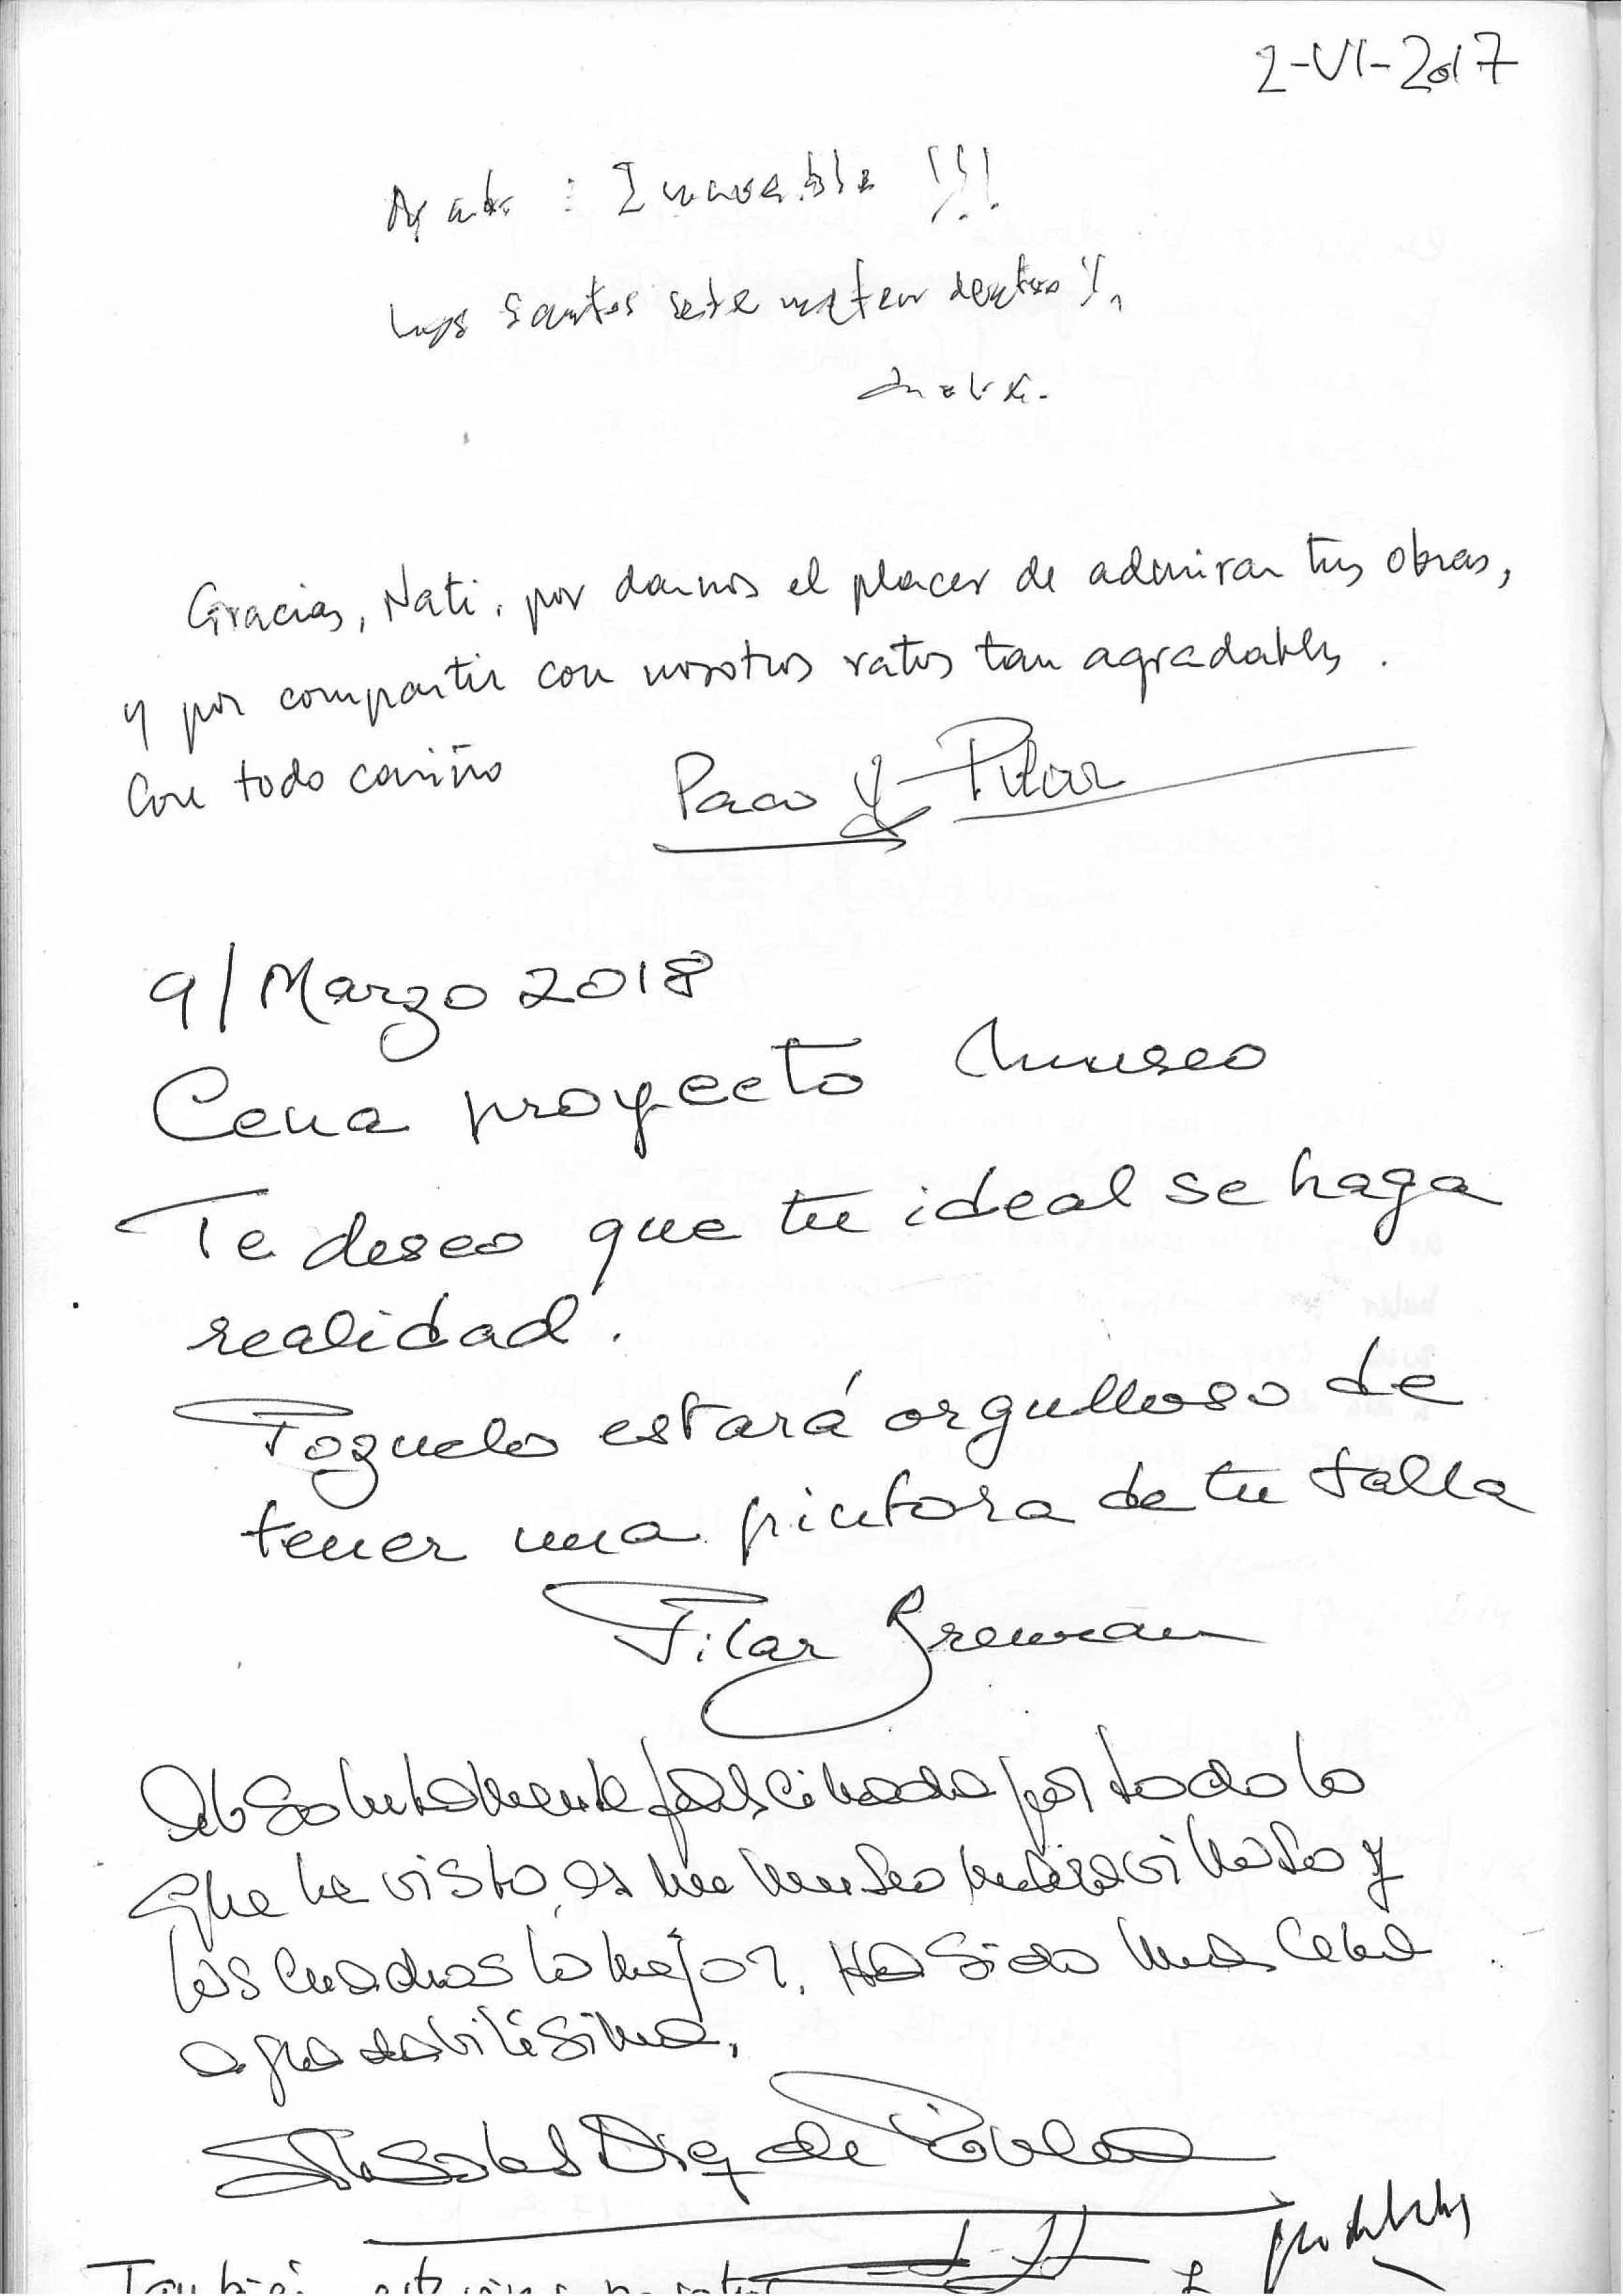 2-VI-2017
Los Santos se te meten dentro
Gracias, Nati, por darnos el placer de admirar tus obras,
y por compartir con nosotros ratos tan agradables.
Con todo cariño Paco y Pilar
9/Marzo 2018
Cena proyecto Museo
Te deseo que tu ideal se haga
realidad.
Pozuelo estará orgulloso de
tener una pintora de tu talla
Pilar
Absolutamente fascinada por todo lo
que he visto, es un museo maravilloso y
los cuadros lo mejor. Ha sido una cena
agradabilísima.
de
También